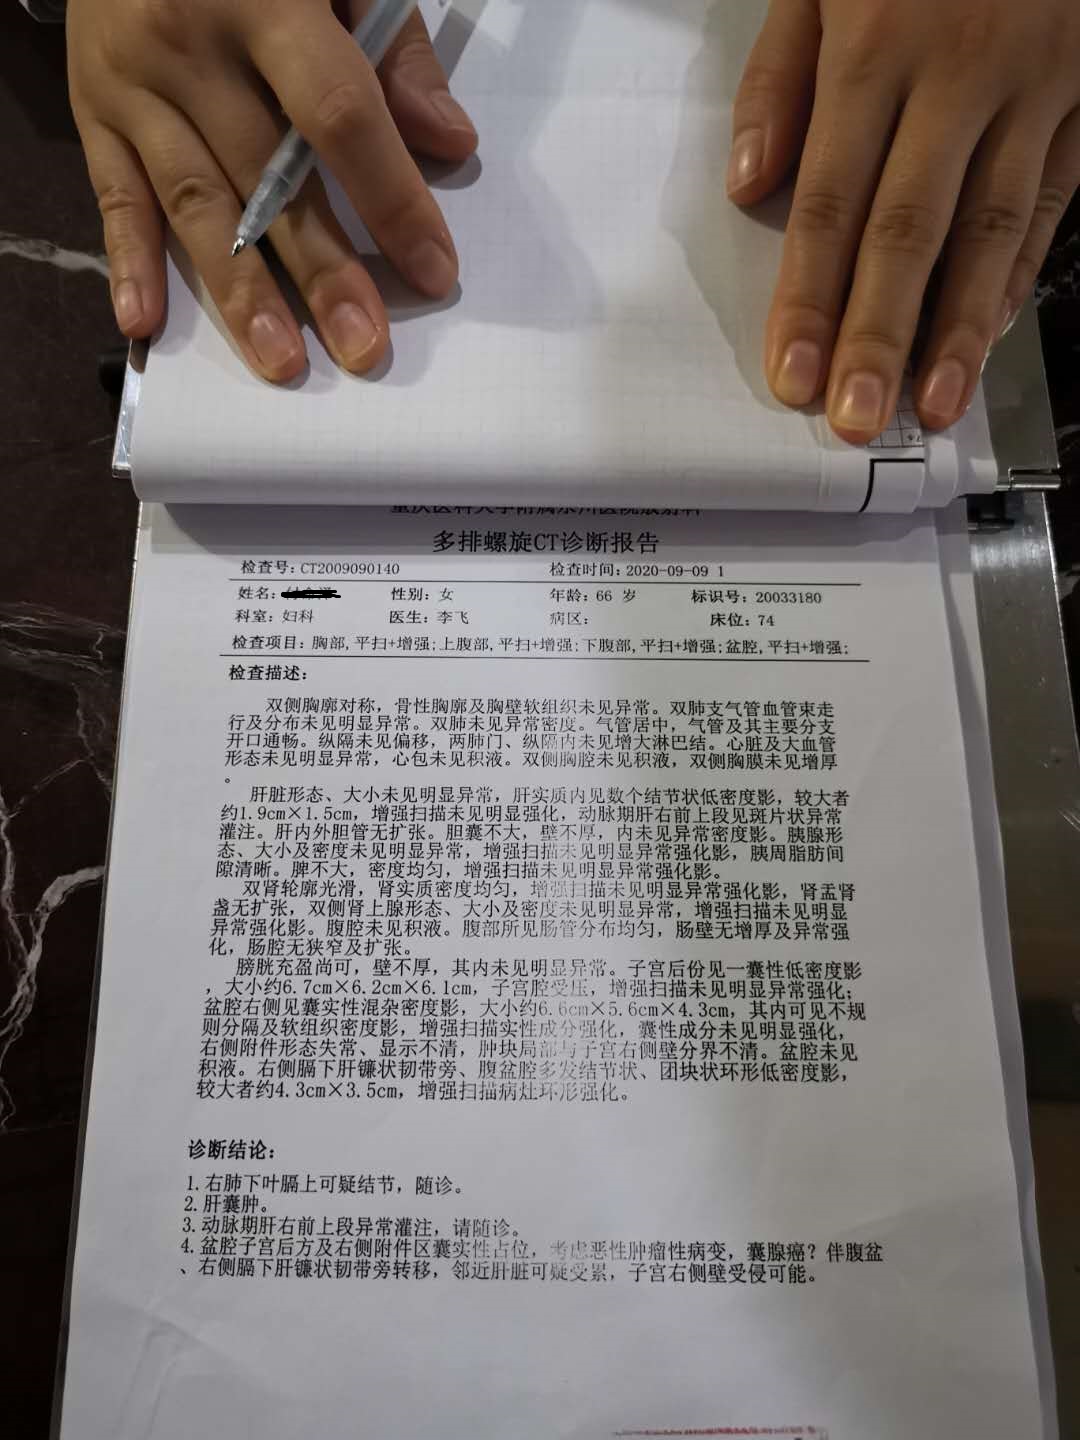 多排螺旋CT诊断报告
检查号：CT2009090140 检查时间：2020-09-09 1
姓名： 性别：女 年龄：66 岁 标识号：20033180
科室：妇科 医生：李飞 病区： 床位：74
检查项目：胸部,平扫+增强;上腹部,平扫+增强;下腹部,平扫+增强;盆腔,平扫+增强;
检查描述：
双侧胸廓对称，骨性胸廓及胸壁软组织未见异常。双肺支气管血管束走
行及分布未见明显异常。双肺未见异常密度。气管居中，气管及其主要分支
开口通畅。纵隔未见偏移，两肺门、纵隔内未见增大淋巴结。心脏及大血管
形态未见明显异常，心包未见积液。双侧胸腔未见积液，双侧胸膜未见增厚
。
肝脏形态、大小未见明显异常，肝实质内见数个结节状低密度影，较大者
约1.9cm×1.5cm，增强扫描未见明显强化，动脉期肝右前上段见斑片状异常
灌注。肝内外胆管无扩张。胆囊不大，壁不厚，内未见异常密度影。胰腺形
态、大小及密度未见明显异常，增强扫描未见明显异常强化影，胰周脂肪间
隙清晰。脾不大，密度均匀，增强扫描未见明显异常强化影。
双肾轮廓光滑，肾实质密度均匀，增强扫描未见明显异常强化影，肾盂肾
盏无扩张，双侧肾上腺形态、大小及密度未见明显异常，增强扫描未见明显
异常强化影。腹腔未见积液。腹部所见肠管分布均匀，肠壁无增厚及异常强
化，肠腔无狭窄及扩张。
膀胱充盈尚可，壁不厚，其内未见明显异常。子宫后份见一囊性低密度影
，大小约6.7cm×6.2cm×6.1cm，子宫腔受压，增强扫描未见明显异常强化；
盆腔右侧见囊实性混杂密度影，大小约6.6cm×5.6cm×4.3cm，其内可见不规
则分隔及软组织密度影，增强扫描实性成分强化，囊性成分未见明显强化，
右侧附件形态失常、显示不清，肿块局部与子宫右侧壁分界不清。盆腔未见
积液。右侧膈下肝镰状韧带旁、腹盆腔多发结节状、团块状环形低密度影，
较大者约4.3cm×3.5cm，增强扫描病灶环形强化。
诊断结论：
1.右肺下叶膈上可疑结节，随诊。
2.肝囊肿。
3.动脉期肝右前上段异常灌注，请随诊。
4.盆腔子宫后方及右侧附件区囊实性占位，考虑恶性肿瘤性病变，囊腺癌？伴腹盆
、右侧膈下肝镰状韧带旁转移，邻近肝脏可疑受累，子宫右侧壁受侵可能。